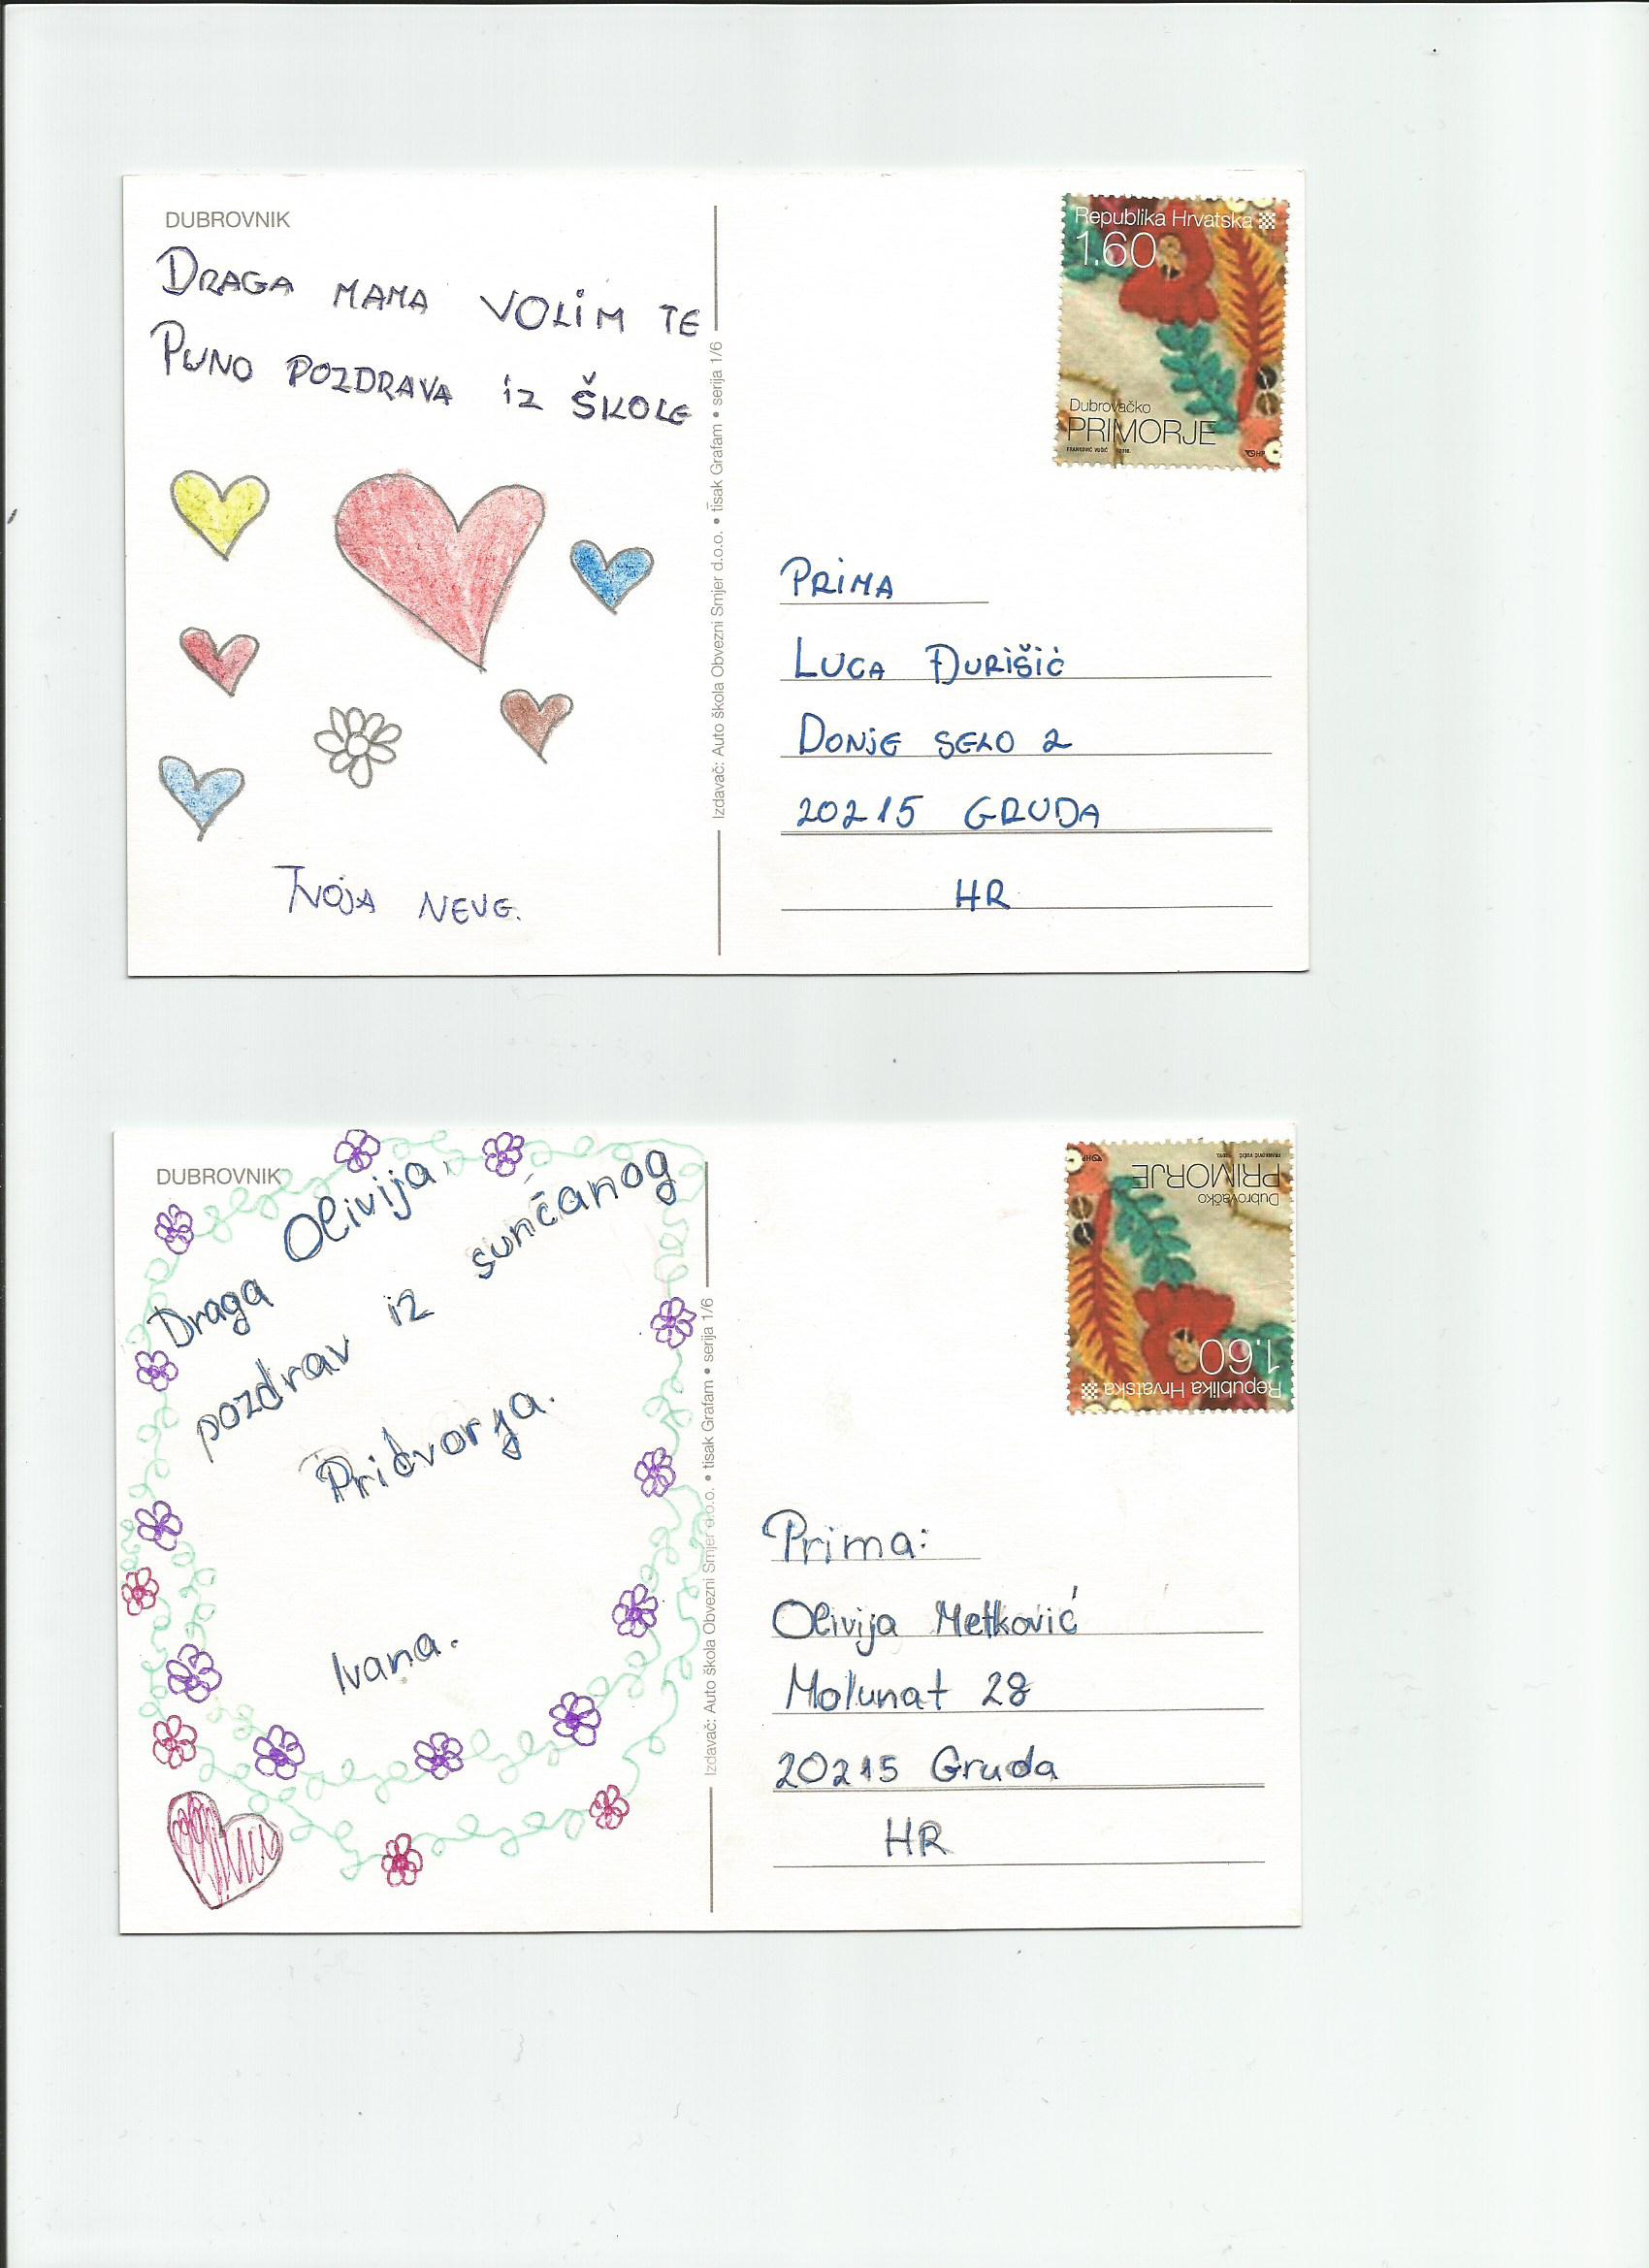 DUBROVNIK
DRAGA MAMA VOLIM TE
PUNO POZDRAVA IZ ŠKOLE
TVOJA NEVE.
Izdavač: Auto škola Obvezni Smjer d.o.o. • tisak Grafam • serija 1/6
Republika Hrvatska
1.60
Dubrovačko
PRIMORJE
HP
PRIMA
LUCA ĐURIŠIĆ
DONJE SELO 2
20215 GRUDA
HR
DUBROVNIK
Draga Olivija
pozdrav iz sunčanog
Pridvorja.
Ivana.
Izdavač: Auto škola Obvezni Smjer d.o.o. • tisak Grafam • serija 1/6
Republika Hrvatska
1.60
Dubrovačko
PRIMORJE
HP
Prima:
Olivija Metković
Molunat 28
20215 Gruda
HR